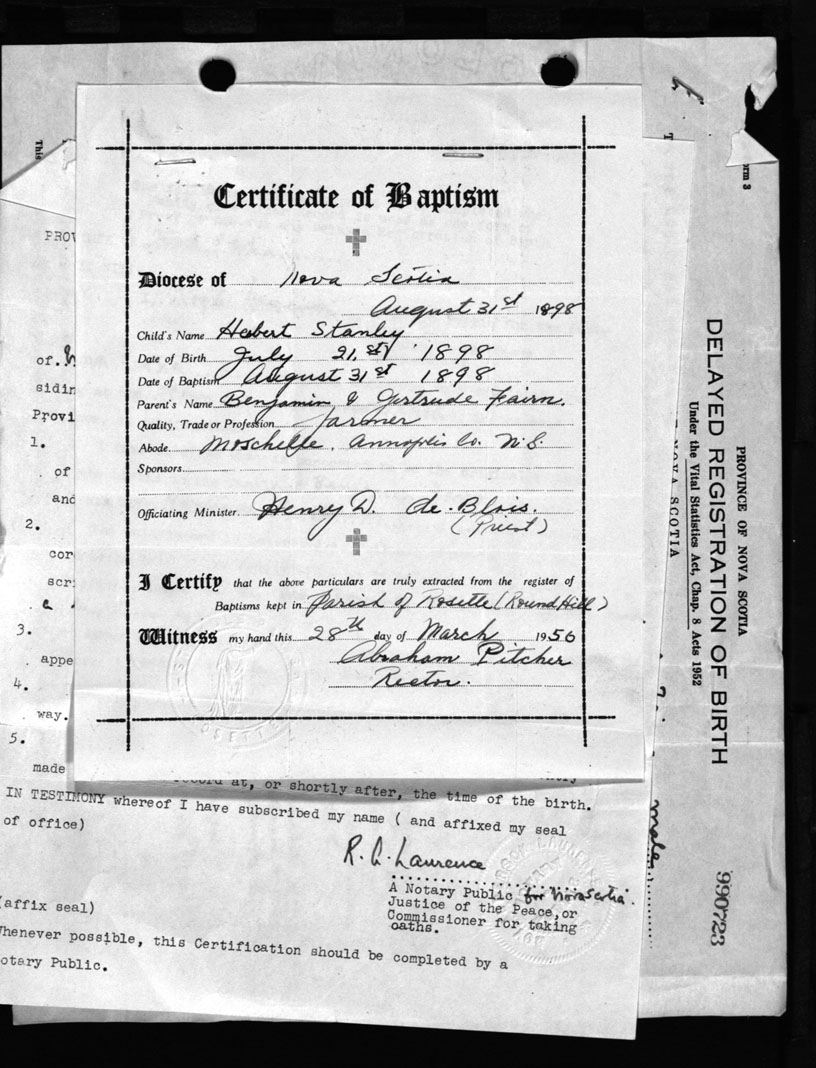 Certificate of Baptism
Diocese of Nova Scotia
August 31st 1898
Child's Name Hebert Stanley
Date of Birth July 21.st 1898
Date of Baptism August 31st 1898
Parent's Name Benjamin & Gertrude Fairn.
Quality, Trade or Profession farmer
Abode Moschelle. Annapolis Co. N.S.
Sponsors
Officiating Minister Henry D. de-Blois.
(Priest)
I Certify that the above particulars are truly extracted from the register of
Baptisms kept in Parish of Rosette (Round Hill)
Witness my hand this 28th day of March 1956
Abraham Pitcher
Rector.
This
PROV
of
sidin
Provi
1.
of
and
2.
cor
scri
3.
appe
4.
way.
5.
made
record at, or shortly after, the time of the birth.
IN TESTIMONY whereof I have subscribed my name ( and affixed my seal
of office)
R. A. Laurence
A Notary Public for Nova Scotia.
Justice of the Peace, or
Commissioner for taking
oaths.
(affix seal)
Whenever possible, this Certification should be completed by a
otary Public.
rm 3
PROVINCE OF NOVA SCOTIA
DELAYED REGISTRATION OF BIRTH
Under the Vital Statistics Act, Chap. 8 Acts 1952
NOVA SCOTIA
male
990723